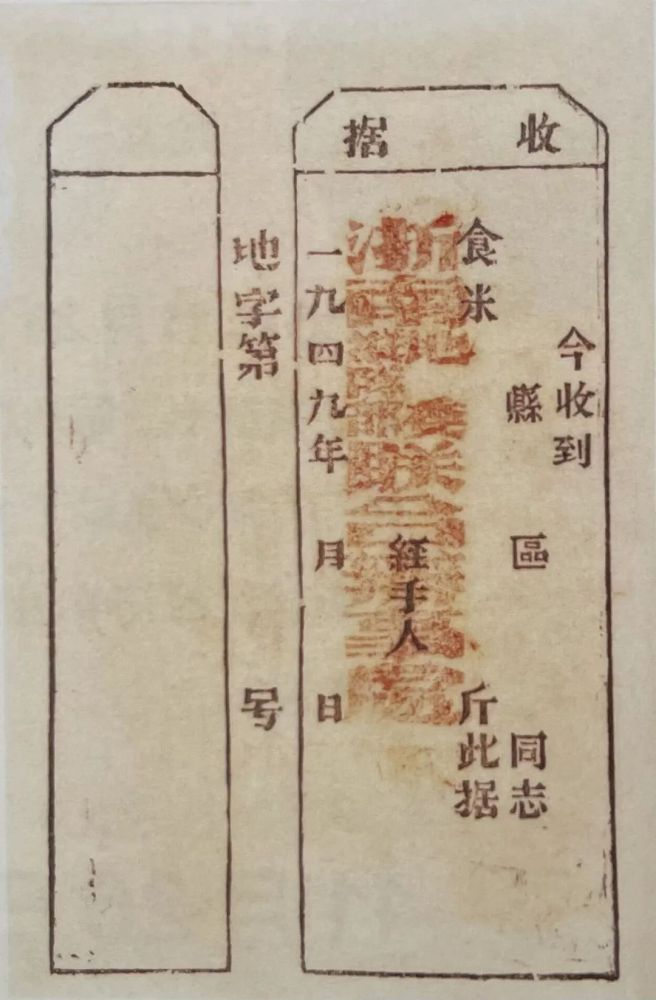 收据
今收到
縣 區 同志
食米 斤此据
経手人
一九四九年 月 日
地字第 号